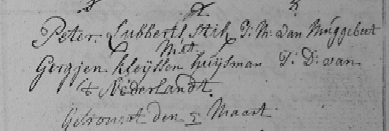 Peter Lubberts Stik J: M: van Nuggebert
Met
Gerrjen Kleijssen huijsman J: D: van
't Nederlandt
Getrouwt den 2 Maart